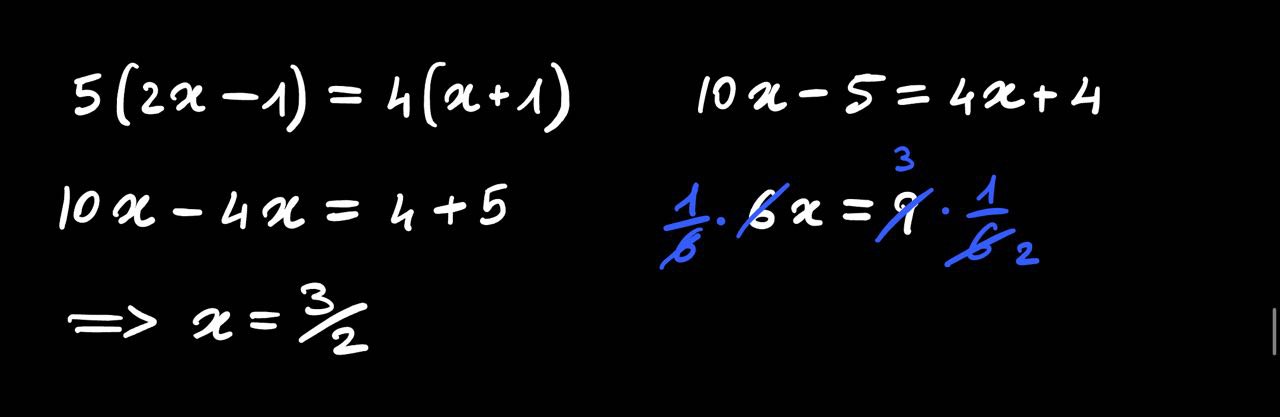 5(2x-1) = 4(x+1)
10x - 5 = 4x + 4
10x - 4x = 4 + 5
1/6 · 6x = 9 · 1/6
3
2
=> x = 3/2